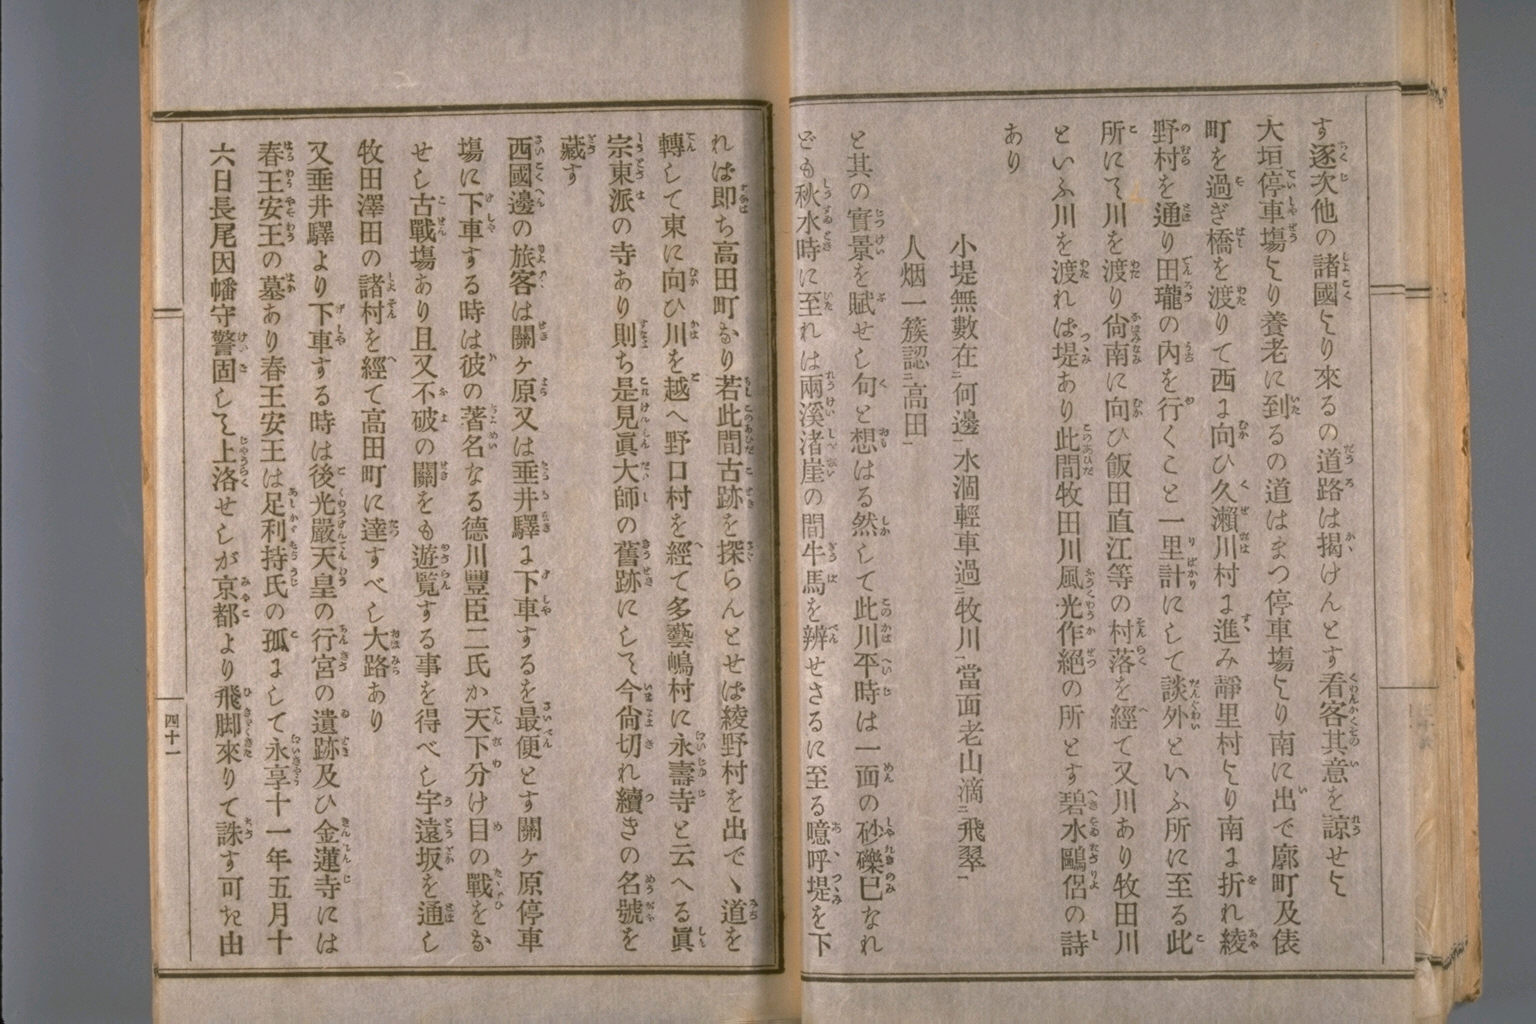 す逐次他の諸國より來るの道路は揭けんとす看客其意を諒せよ
大垣停車塲より養老に到るの道はまつ停車塲より南に出で廓町及俵
町を過ぎ橋を渡りて西に向ひ久瀨川村に進み靜里村より南に折れ綾
野村を通り田瓏の內を行くこと一里計にして談外といふ所に至る此
所にて川を渡り尙南に向ひ飯田直江等の村落を經て又川あり牧田川
といふ川を渡れば堤あり此間牧田川風光作絕の所とす碧水鷗侶の詩
あり
小堤無數在二何邊一水涸輕車過二牧川一當面老山滴二飛翠一
人烟一簇認二高田一
と其の實景を賦せし句と想はる然して此川平時は一面の砂礫已なれ
ども秋水時に至れは兩溪渚崖の間牛馬を辨せさるに至る噫呼堤を下
れば即ち高田町なり若此間古跡を探らんとせば綾野村を出で、道を
轉して東に向ひ川を越へ野口村を經て多藝嶋村に永壽寺と云へる眞
宗東派の寺あり則ち是見眞大師の舊跡にして今尙切れ續きの名號を
藏す
西國邊の旅客は關ヶ原又は垂井驛に下車するを最便とす關ヶ原停車
塲に下車する時は彼の著名なる德川豐臣二氏か天下分け目の戰をな
せし古戰塲あり且又不破の關をも遊覧する事を得べし宇遠坂を通し
牧田澤田の諸村を經て高田町に達すべし大路あり
又垂井驛より下車する時は後光嚴天皇の行宮の遺跡及ひ金蓮寺には
春王安王の墓あり春王安王は足利持氏の孤にして永享十一年五月十
六日長尾因幡守警固して上洛せしが京都より飛脚來りて誅す可た由
四十一